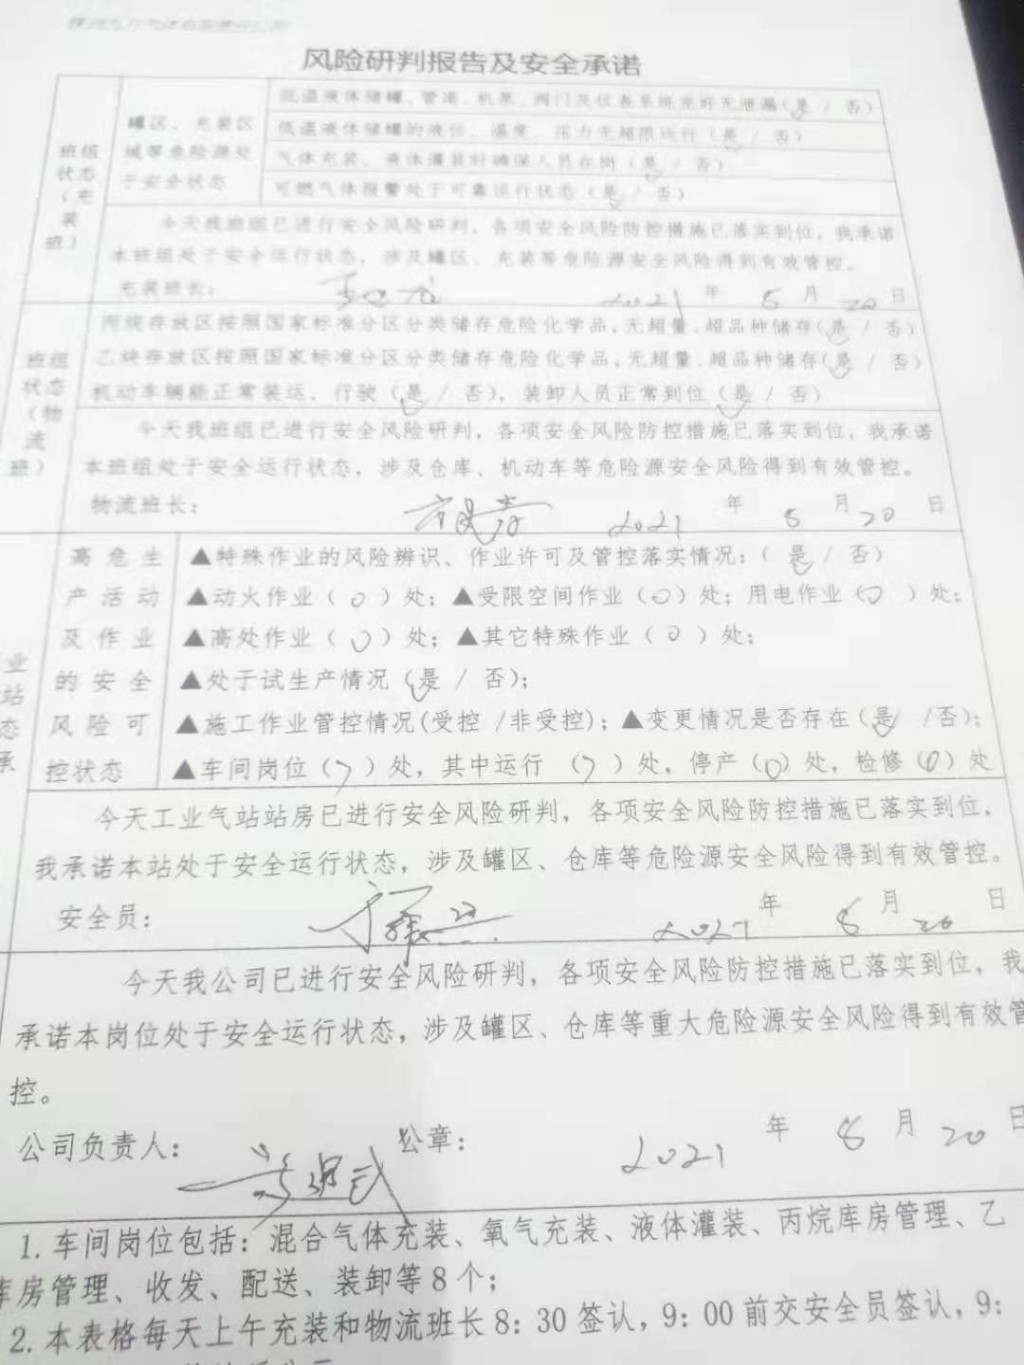 风险研判报告及安全承诺
班组状态（充装班）
罐区、充装区域等危险源处于安全状态
低温液体储罐、管道、机泵、阀门及仪表系统完好无泄漏（是 / 否）
低温液体储罐的液位、温度、压力无超限运行（是 / 否）
气体充装、液体灌装时确保人员在岗（是 / 否）
可燃气体报警处于可靠运行状态（是 / 否）
今天我班组已进行安全风险研判，各项安全风险防控措施已落实到位，我承诺
本班组处于安全运行状态，涉及罐区、充装等危险源安全风险得到有效管控。
充装班长： 2021 年 8 月 20 日
班组状态（物流班）
丙烷存放区按照国家标准分区分类储存危险化学品，无超量、超品种储存（是 / 否）
乙炔存放区按照国家标准分区分类储存危险化学品，无超量、超品种储存（是 / 否）
机动车辆能正常装运、行驶（是 / 否），装卸人员正常到位（是 / 否）
今天我班组已进行安全风险研判，各项安全风险防控措施已落实到位，我承诺
本班组处于安全运行状态，涉及仓库、机动车等危险源安全风险得到有效管控。
物流班长： 2021 年 8 月 20 日
高危生产活动及作业的安全风险可控状态
▲特殊作业的风险辨识、作业许可及管控落实情况：（ 是 / 否）
▲动火作业（ 0 ）处；▲受限空间作业（0）处；用电作业（0 ）处；
▲高处作业（ 0 ）处；▲其它特殊作业（ 0 ）处；
▲处于试生产情况（是 / 否）；
▲施工作业管控情况(受控 /非受控)；▲变更情况是否存在（是 /否）；
▲车间岗位（7 ）处，其中运行 （7 ）处，停产（0）处，检修（0）处
今天工业气站站房已进行安全风险研判，各项安全风险防控措施已落实到位，
我承诺本站处于安全运行状态，涉及罐区、仓库等危险源安全风险得到有效管控。
安全员： 2021 年 8 月 20 日
今天我公司已进行安全风险研判，各项安全风险防控措施已落实到位，我
承诺本岗位处于安全运行状态，涉及罐区、仓库等重大危险源安全风险得到有效管
控。
公司负责人： 公章： 2021 年 8 月 20 日
1.车间岗位包括：混合气体充装、氧气充装、液体灌装、丙烷库房管理、乙
库房管理、收发、配送、装卸等8个；
2.本表格每天上午充装和物流班长8：30签认，9：00前交安全员签认，9：